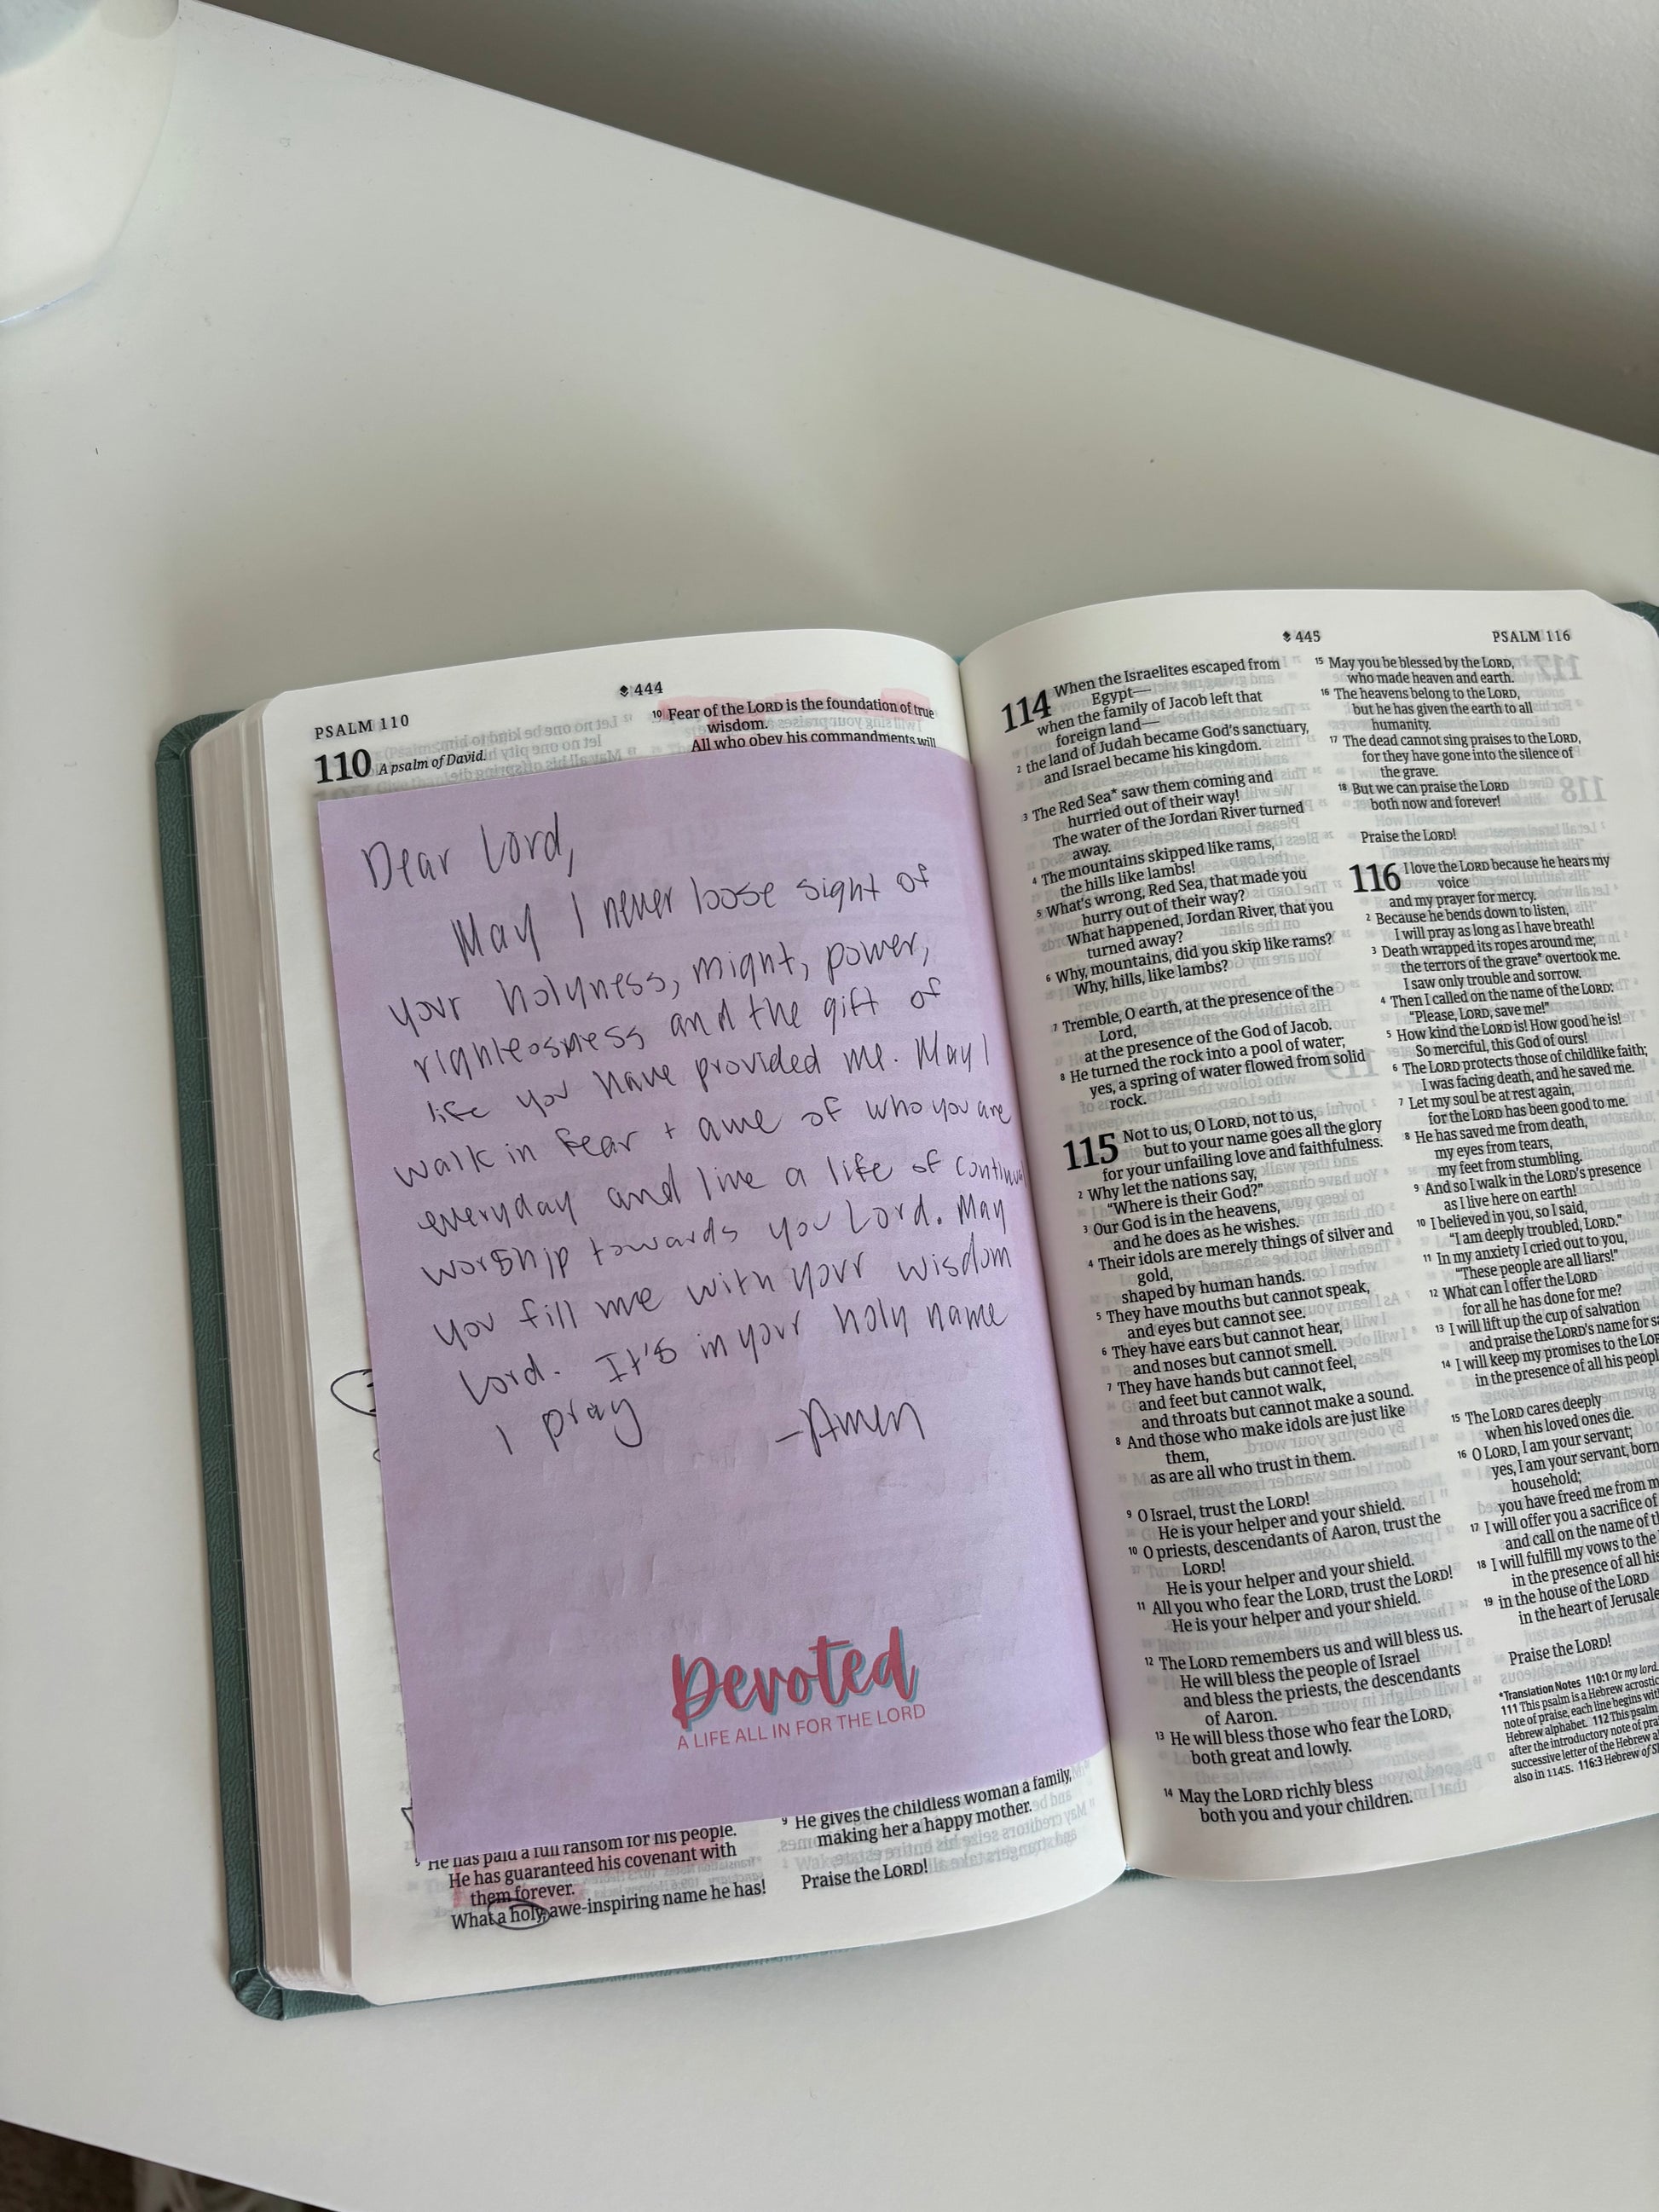 PSALM 110
444
110 A psalm of David.
10 Fear of the LORD is the foundation of true
wisdom.
All who obey his commandments will
Dear Lord,
May I never loose sight of
your holyness, might, power,
righteosness and the gift of
life you have provided me. May I
walk in fear + awe of who you are
everyday and live a life of continual
worship towards you Lord. May
you fill me with your wisdom
Lord. It's in your holy name
I pray
-Amen
Devoted
A LIFE ALL IN FOR THE LORD
9 He has paid a full ransom for his people.
He has guaranteed his covenant with
them forever.
What a holy, awe-inspiring name he has!
9 He gives the childless woman a family,
making her a happy mother.
Praise the LORD!
445
PSALM 116
114 When the Israelites escaped from
Egypt—
when the family of Jacob left that
foreign land—
2 the land of Judah became God's sanctuary,
and Israel became his kingdom.
3 The Red Sea* saw them coming and
hurried out of their way!
The water of the Jordan River turned
away.
4 The mountains skipped like rams,
the hills like lambs!
5 What's wrong, Red Sea, that made you
hurry out of their way?
What happened, Jordan River, that you
turned away?
6 Why, mountains, did you skip like rams?
Why, hills, like lambs?
7 Tremble, O earth, at the presence of the
Lord,
at the presence of the God of Jacob.
8 He turned the rock into a pool of water;
yes, a spring of water flowed from solid
rock.
115 Not to us, O LORD, not to us,
but to your name goes all the glory
for your unfailing love and faithfulness.
2 Why let the nations say,
"Where is their God?"
3 Our God is in the heavens,
and he does as he wishes.
4 Their idols are merely things of silver and
gold,
shaped by human hands.
5 They have mouths but cannot speak,
and eyes but cannot see.
6 They have ears but cannot hear,
and noses but cannot smell.
7 They have hands but cannot feel,
and feet but cannot walk,
and throats but cannot make a sound.
8 And those who make idols are just like
them,
as are all who trust in them.
9 O Israel, trust the LORD!
He is your helper and your shield.
10 O priests, descendants of Aaron, trust the
LORD!
He is your helper and your shield.
11 All you who fear the LORD, trust the LORD!
He is your helper and your shield.
12 The LORD remembers us and will bless us.
He will bless the people of Israel
and bless the priests, the descendants
of Aaron.
13 He will bless those who fear the LORD,
both great and lowly.
14 May the LORD richly bless
both you and your children.
15 May you be blessed by the LORD,
who made heaven and earth.
16 The heavens belong to the LORD,
but he has given the earth to all
humanity.
17 The dead cannot sing praises to the LORD,
for they have gone into the silence of
the grave.
18 But we can praise the LORD
both now and forever!
Praise the LORD!
116 I love the LORD because he hears my
voice
and my prayer for mercy.
2 Because he bends down to listen,
I will pray as long as I have breath!
3 Death wrapped its ropes around me;
the terrors of the grave* overtook me.
I saw only trouble and sorrow.
4 Then I called on the name of the LORD:
"Please, LORD, save me!"
5 How kind the LORD is! How good he is!
So merciful, this God of ours!
6 The LORD protects those of childlike faith;
I was facing death, and he saved me.
7 Let my soul be at rest again,
for the LORD has been good to me.
8 He has saved me from death,
my eyes from tears,
my feet from stumbling.
9 And so I walk in the LORD's presence
as I live here on earth!
10 I believed in you, so I said,
"I am deeply troubled, LORD."
11 In my anxiety I cried out to you,
"These people are all liars!"
12 What can I offer the LORD
for all he has done for me?
13 I will lift up the cup of salvation
and praise the LORD's name for
14 I will keep my promises to the
in the presence of all his
15 The LORD cares deeply
when his loved ones die.
16 O LORD, I am your servant;
yes, I am your servant, born
household;
you have freed me from
17 I will offer you a sacrifice of
and call on the name of
18 I will fulfill my vows to the
in the presence of all his
19 in the house of the LORD
in the heart of
Praise the LORD!
*Translation Notes 110:1 Or my lord.
111 This psalm is a Hebrew acrostic
note of praise, each line begins
Hebrew alphabet. 112 This psalm
after the introductory note of
successive letter of the Hebrew
also in 114:5. 116:3 Hebrew of